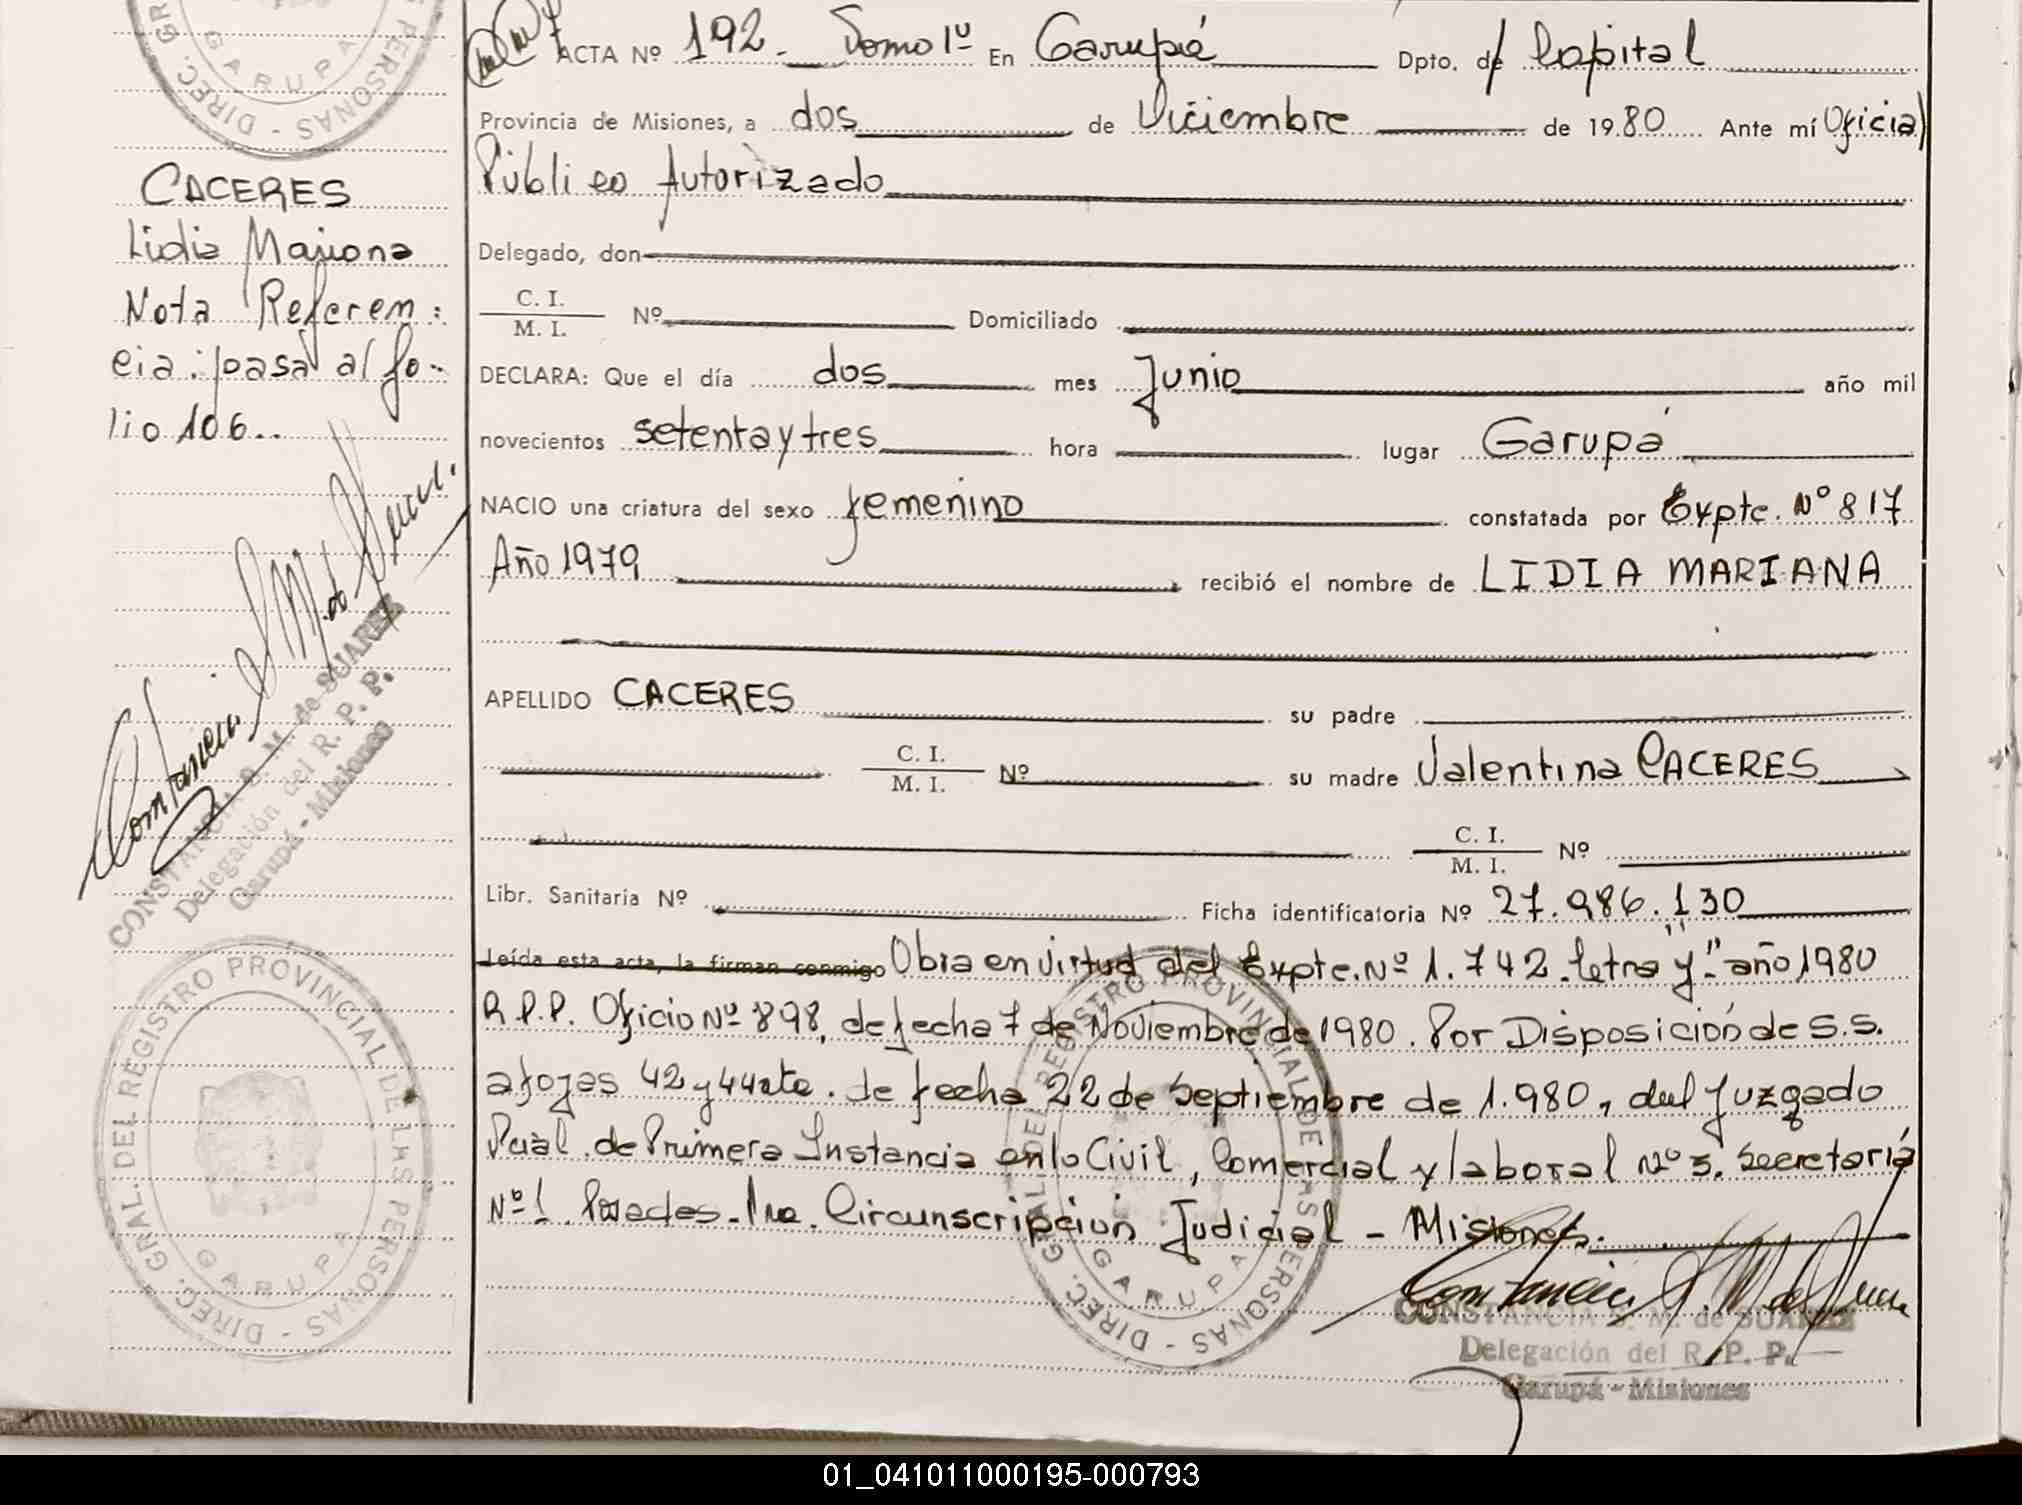 ACTA Nº 192. Tomo 1º En Garupá Dpto. de Capital
Provincia de Misiones, a dos de Diciembre de 1980 Ante mí Oficial
Público Autorizado
Delegado, don
C. I.
M. I.
Nº Domiciliado
DECLARA: Que el día dos mes Junio año mil
novecientos setenta y tres hora lugar Garupá
NACIO una criatura del sexo femenino constatada por Expte. Nº 817
Año 1979 recibió el nombre de LIDIA MARIANA
APELLIDO CACERES su padre
C. I.
M. I.
Nº su madre Valentina CACERES
C. I.
M. I.
Nº
Libr. Sanitaria Nº Ficha identificatoria Nº 27.986.130
Leída esta acta, la firman conmigo Obra en virtud del Expte. Nº 1.742 letra "y" año 1980
R.P.P. Oficio Nº 898, de fecha 7 de Noviembre de 1980. Por Disposición de S.S.
a fojas 42 y 44 de fecha 22 de Septiembre de 1.980, del Juzgado
Pcial. de Primera Instancia en lo Civil, Comercial y laboral Nº 3. Secretaria
Nº 1. Posadas - 1ra. Circunscripción Judicial - Misiones.
CONSTANCIA S. M. de SUAREZ
Delegación del R. P. P.
Garupá - Misiones
CACERES
Lidia Mariana
Nota Referen:
cia: pasa al fo-
lio 106..
CONSTANCIA S. M. de SUAREZ
Delegación del R. P. P.
Garupá - Misiones
DIREC. GRAL. DEL REGISTRO PROVINCIAL DE LAS PERSONAS
GARUPA
DIREC. GRAL. DEL REGISTRO PROVINCIAL DE LAS PERSONAS
GARUPA
DIREC. GR PERSONAS
GARUPA
01_041011000195-000793